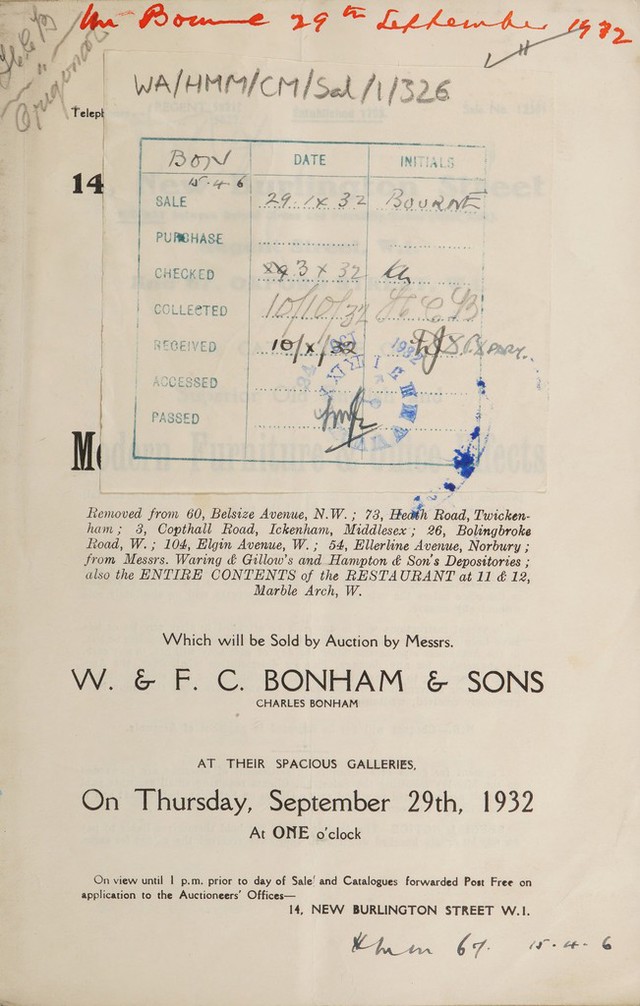 Mr Bourne 29th September 1932
WA/HMM/CM/Sal/1/326
Teleph
14
BON DATE INITIALS
15.4.6
SALE 29.IX 32 BOURNE
PURCHASE
CHECKED 3 X 32
COLLECTED 10/10/32 H C B
RECEIVED 10/X/32
ACCESSED
PASSED
Modern Furniture Effects
Removed from 60, Belsize Avenue, N.W.; 73, Heath Road, Twicken-
ham; 3, Copthall Road, Ickenham, Middlesex; 26, Bolingbroke
Road, W.; 104, Elgin Avenue, W.; 54, Ellerline Avenue, Norbury;
from Messrs. Waring & Gillow's and Hampton & Son's Depositories;
also the ENTIRE CONTENTS of the RESTAURANT at 11 & 12,
Marble Arch, W.
Which will be Sold by Auction by Messrs.
W. & F. C. BONHAM & SONS
CHARLES BONHAM
AT THEIR SPACIOUS GALLERIES,
On Thursday, September 29th, 1932
At ONE o'clock
On view until 1 p.m. prior to day of Sale and Catalogues forwarded Post Free on
application to the Auctioneers' Offices—
14, NEW BURLINGTON STREET W.1.
67. 15.4.6